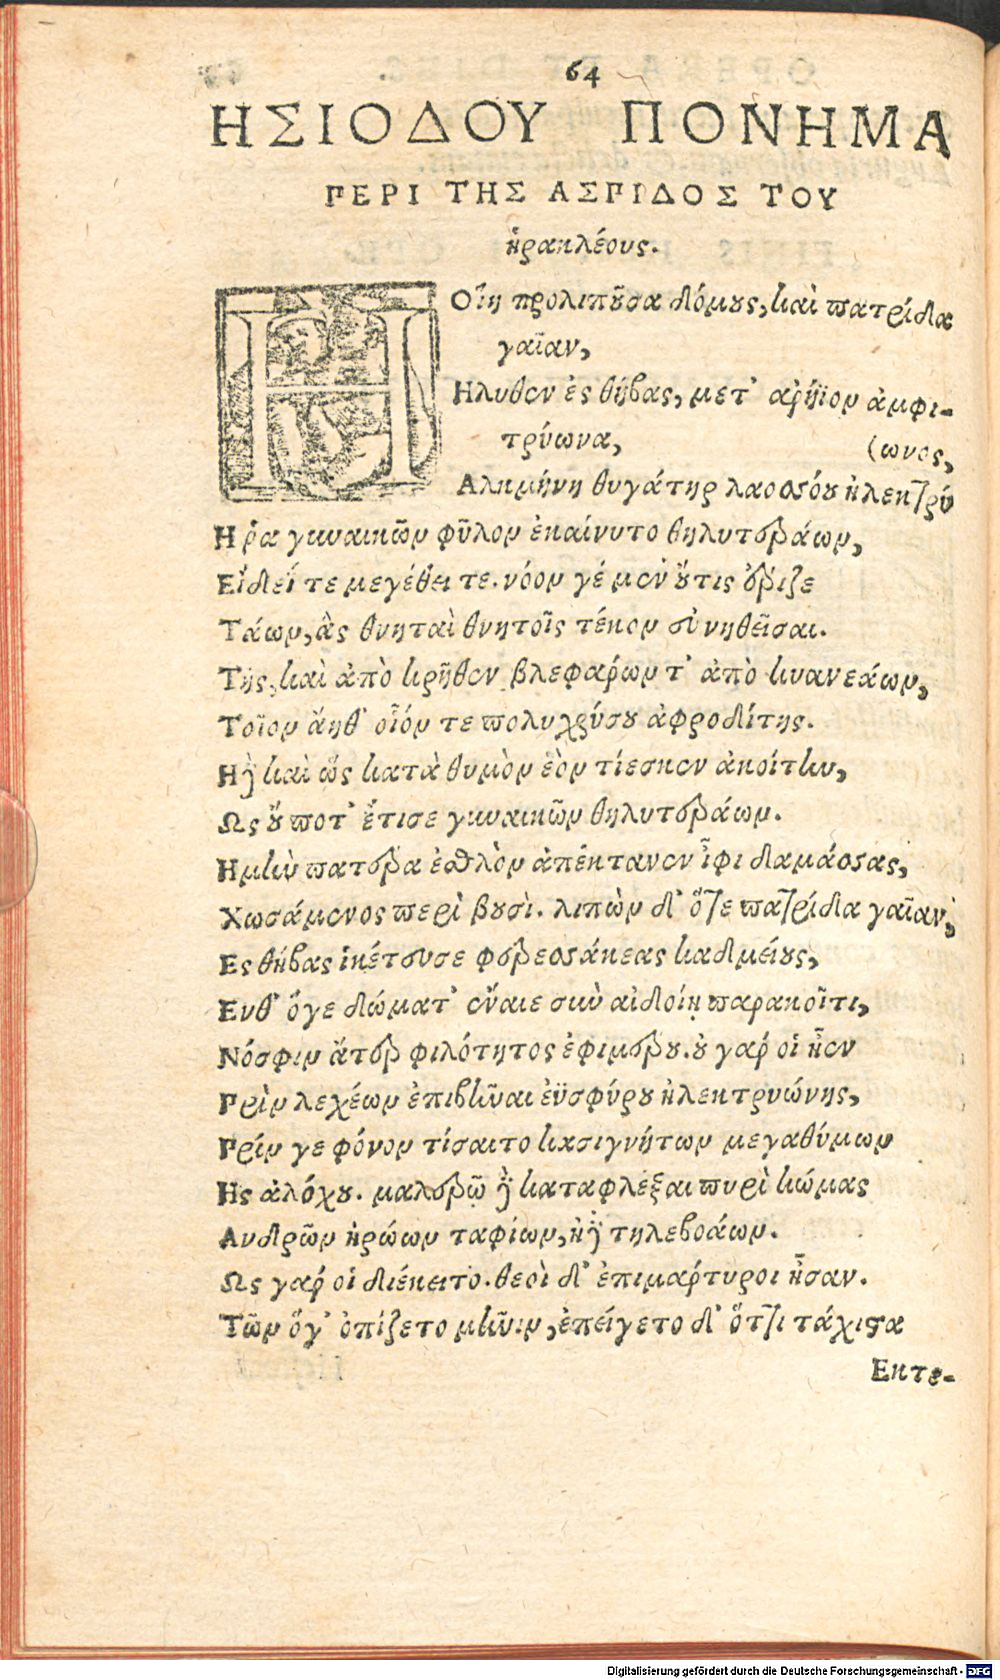 64
ΗΣΙΟΔΟΥ ΠΟΝΗΜΑ
ΠΕΡΙ ΤΗΣ ΑΣΠΙΔΟΣ ΤΟΥ
ἡρακλέους.
Η Οἵη προλιποῦσα δόμους, καὶ πατρίδα
γαῖαν,
Ηλυθεν ἐς θήβας, μετ' ἀρήϊον ἀμφι-
τρύωνα, (ωνος,
Αλκμήνη θυγάτηρ λαοσσόου ἠλεκτρύ
Η ῥα γυναικῶν φῦλον ἐκαίνυτο θηλυτεράων,
Εἴδεΐ τε μεγέθει τε. νόον γέ μεν οὔτις ἔριζε
Τάων, ἃς θνηταὶ θνητοῖς τέκον συνηθεῖσαι.
Τῆς, καὶ ἀπὸ κρῆθεν βλεφάρων τ' ἀπὸ κυανεάων,
Τοῖον ἄηθ' οἷόν τε πολυχρύσου ἀφροδίτης.
Η δὲ καὶ ὣς κατὰ θυμὸν ἑὸν τίεσκεν ἀκοίτην,
Ως οὔ ποτ' ἔτισε γυναικῶν θηλυτεράων.
Η μὴν πατέρα ἐσθλὸν ἀπέκτανεν ἶφι δαμάσσας,
Χωσάμενος περὶ βουσί. λιπὼν δ' ὅτε πατρίδα γαῖαν,
Ες θήβας ἱκέτευσε φερεσσάκεας καδμείους,
Ενθ' ὅγε δώματ' ἔναιε σὺν αἰδοίῃ παρακοῖτι,
Νόσφιν ἄτερ φιλότητος ἐφιμέρου. οὐ γάρ οἱ ἦεν
Πρὶν λεχέων ἐπιβῆναι ἐϋσφύρου ἠλεκτρυώνης,
Πρίν γε φόνον τίσαιτο κασιγνήτων μεγαθύμων
Ης ἀλόχου. μαλερῷ δὲ καταφλέξαι πυρὶ κώμας
Ανδρῶν ἡρώων ταφίων, ἠδὲ τηλεβοάων.
Ως γάρ οἱ διέκειτο. θεοὶ δ' ἐπιμάρτυροι ἦσαν.
Τῶν ὅγ' ὀπίζετο μῆνιν, ἐπείγετο δ' ὅττι τάχιστα
Εκτε-
Digitalisierung gefördert durch die Deutsche Forschungsgemeinschaft - DFG